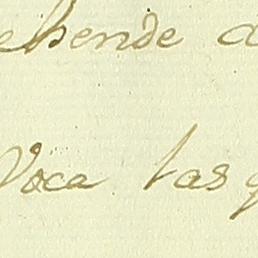 ehende a
Voca las q